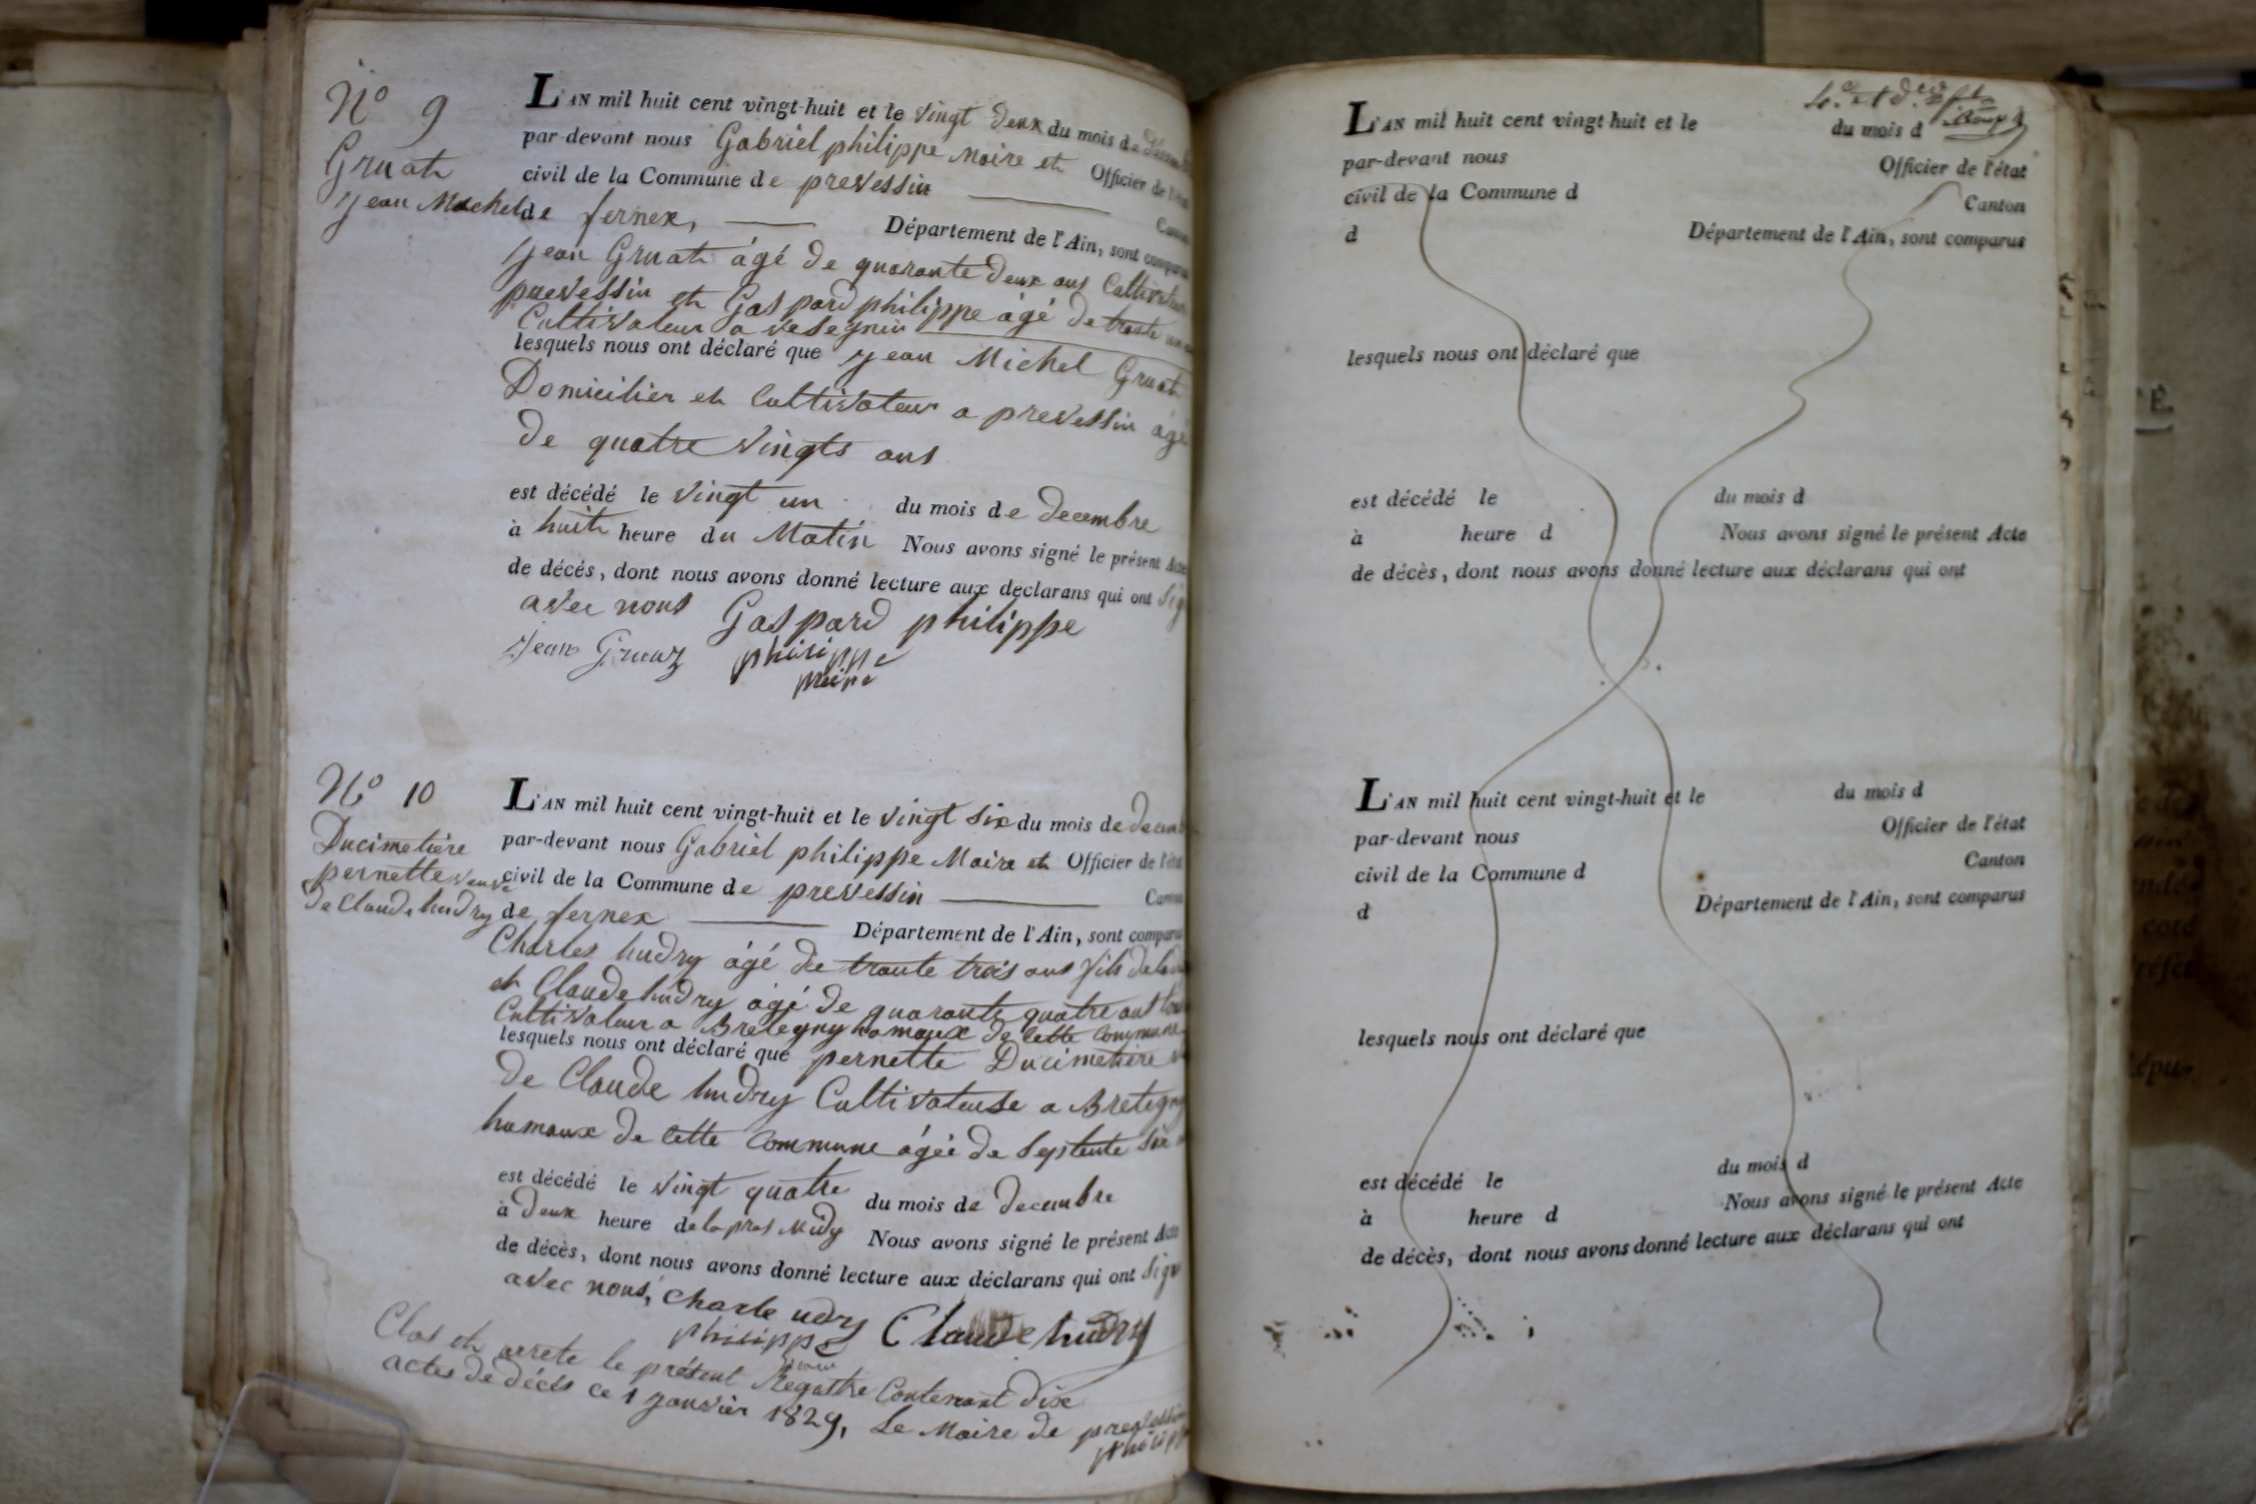 N° 9
Gruat
jean Michel
L'AN mil huit cent vingt-huit et le vingt deux du mois de
par-devant nous Gabriel philippe Maire et Officier de l'état
civil de la Commune de prevessin
de fernex, Département de l'Ain, sont comparus
jean Gruat âgé de quarante deux ans Cultivateur
prevessin et Gaspard philippe âgé de trante un
Cultivateur a vesegnin
lesquels nous ont déclaré que jean Michel Gruat
Domicilier et Cultivateur a prevessin agé
de quatre vingts ans
est décédé le vingt un du mois de decembre
à huit heure du Matin Nous avons signé le présent Acte
de décés, dont nous avons donné lecture aux déclarans qui ont
avec nous Gaspard philippe
jean Gruaz philippe
maire
N° 10
Ducimetière
pernette veuve
de Claude hudry
L'AN mil huit cent vingt-huit et le vingt six du mois de decemb
par-devant nous Gabriel philippe Maire et Officier de l'état
civil de la Commune de prevessin Canton
de fernex Département de l'Ain, sont comparus
Charles hudry âgé de trante trois ans fils
et Claude hudry âgé de quarante quatre ans
Cultivateur a Bretegny hamaux de cette commune
lesquels nous ont déclaré que pernette Ducimetière
de Claude hudry Cultivateuse a Bretegny
hamaux de cette commune âgée de septente six
est décédé le vingt quatre du mois de decembre
à deux heure de lapres Midy Nous avons signé le présent Acte
de décès, dont nous avons donné lecture aux déclarans qui ont
avec nous, charle udry Claude hudry
philippe
maire
Clos et arrete le présent Registre Contenant dix
actes de décès ce 1 janvier 1829, Le Maire de prevessin
philippe
L'AN mil huit cent vingt-huit et le du mois d
par-devant nous Officier de l'état
civil de la Commune d Canton
d Département de l'Ain, sont comparus
lesquels nous ont déclaré que
est décédé le du mois d
à heure d Nous avons signé le présent Acte
de décès, dont nous avons donné lecture aux déclarans qui ont
L'AN mil huit cent vingt-huit et le du mois d
par-devant nous Officier de l'état
civil de la Commune d Canton
d Département de l'Ain, sont comparus
lesquels nous ont déclaré que
est décédé le du mois d
à heure d Nous avons signé le présent Acte
de décès, dont nous avons donné lecture aux déclarans qui ont